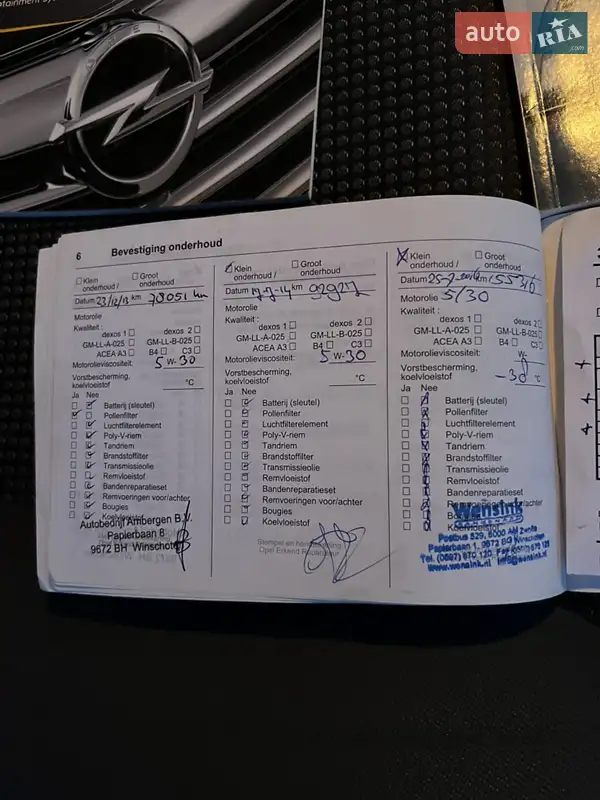 auto RIA
.com
OPEL
6 Bevestiging onderhoud
Klein onderhoud / Groot onderhoud
Datum 23/12/13 km 78051 km
Motorolie
Kwaliteit :
dexos 1 dexos 2
GM-LL-A-025 GM-LL-B-025
ACEA A3 B4 C3
Motorolieviscositeit: 5 W-30
Vorstbescherming, koelvloeistof °C
Ja Nee
Batterij (sleutel)
Pollenfilter
Luchtfilterelement
Poly-V-riem
Tandriem
Brandstoffilter
Transmissieolie
Remvloeistof
Bandenreparatieset
Remvoeringen voor/achter
Bougies
Koelvloeistof
Autobedrijf Ambergen B.V.
Papierbaan 6
9672 BH Winschoten
Klein onderhoud / Groot onderhoud
Datum km
Motorolie
Kwaliteit :
dexos 1 dexos 2
GM-LL-A-025 GM-LL-B-025
ACEA A3 B4 C3
Motorolieviscositeit: 5 W-30
Vorstbescherming, koelvloeistof °C
Ja Nee
Batterij (sleutel)
Pollenfilter
Luchtfilterelement
Poly-V-riem
Tandriem
Brandstoffilter
Transmissieolie
Remvloeistof
Bandenreparatieset
Remvoeringen voor/achter
Bougies
Koelvloeistof
Opel Erkend Reparateur
Klein onderhoud / Groot onderhoud
Datum km
Motorolie 5/30
Kwaliteit :
dexos 1 dexos 2
GM-LL-A-025 GM-LL-B-025
ACEA A3 B4 C3
Motorolieviscositeit: W-
Vorstbescherming, koelvloeistof -30 °C
Ja Nee
Batterij (sleutel)
Pollenfilter
Luchtfilterelement
Poly-V-riem
Tandriem
Brandstoffilter
Transmissieolie
Remvloeistof
Bandenreparatieset
Remvoeringen voor/achter
Koelvloeistof
Wensink
Postbus 529, 8000 AM Zwolle
Papierbaan 1, 9672 BG Winschoten
www.wensink.nl